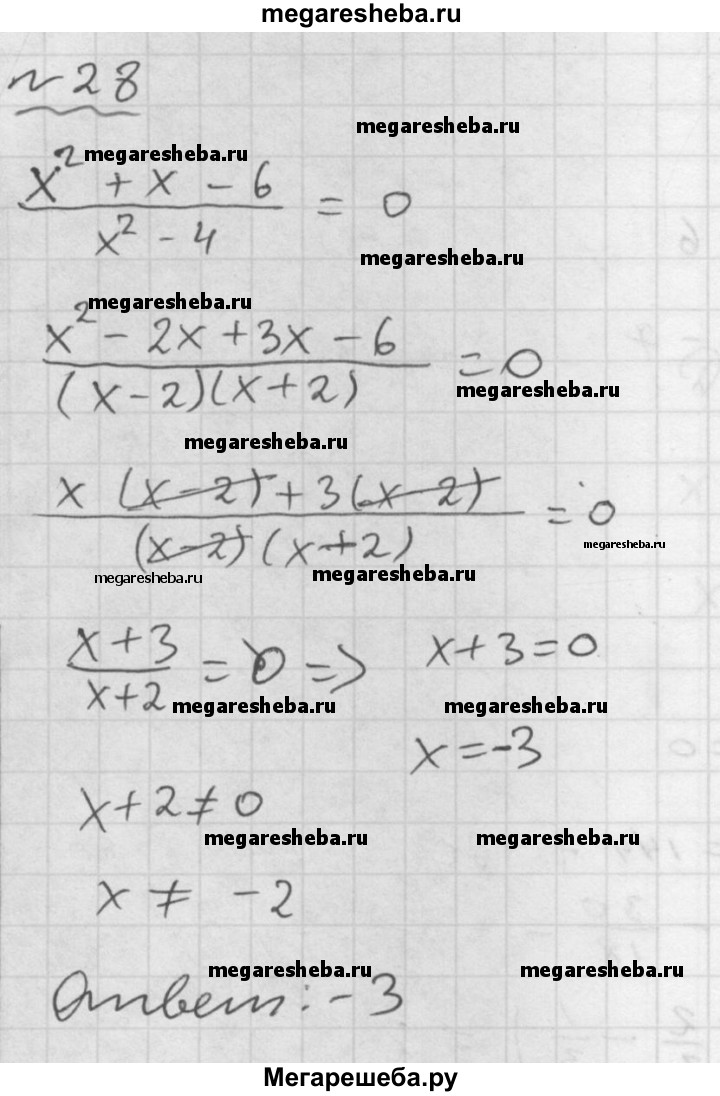 megaresheba.ru
№ 28
megaresheba.ru
megaresheba.ru
x² + x - 6
/ x² - 4 = 0
megaresheba.ru
megaresheba.ru
x² - 2x + 3x - 6
/ (x-2)(x+2) = 0
megaresheba.ru
megaresheba.ru
x (x-2) + 3(x-2)
/ (x-2)(x+2) = 0
megaresheba.ru
megaresheba.ru
megaresheba.ru
x+3 / x+2 = 0 => x+3=0
megaresheba.ru
megaresheba.ru
x=-3
x+2≠0
megaresheba.ru
megaresheba.ru
x ≠ -2
megaresheba.ru
megaresheba.ru
Ответ: -3
Мегарешеба.ру